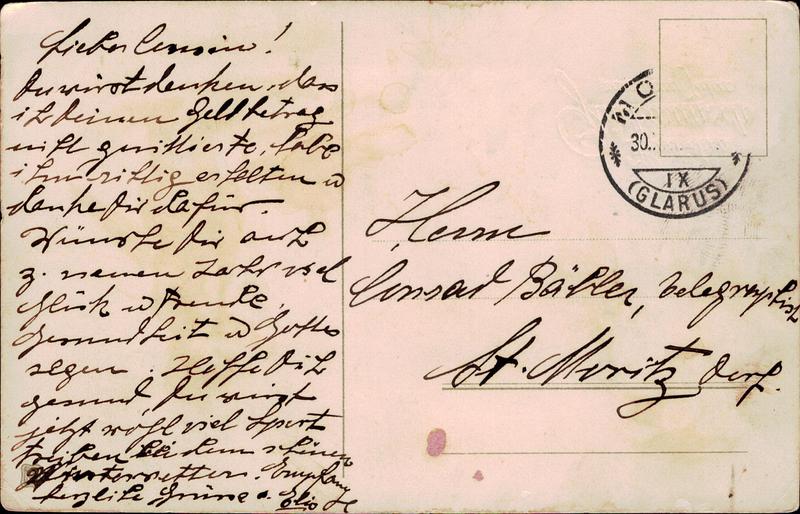 Lieber Cousin!
Du wirst denken, dass
ich Deinen Geldbetrag
nicht quittierte, habe
ihn richtig erhalten u
danke Dir dafür.
Wünsche Dir auch
z. neuen Jahr viel
Glück u Freude,
Gesundheit u Gottes
segen. Hoffe Dich
gesund, Du wirst
jetzt wohl viel Sport
treiben bei dem schönen
Winterwetter. Empfang
herzliche Grüsse v.
MO
30.
IX
(GLARUS)
Herrn
Conrad Bäbler, Telegraphist
St. Moritz Dorf.